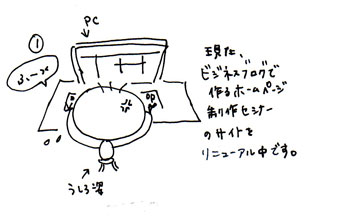 ①
PC
ふぃーっ
現在、
ビジネスブログで
作るホームページ
制作セミナー
のサイトを
リニューアル中です。
うしろ姿